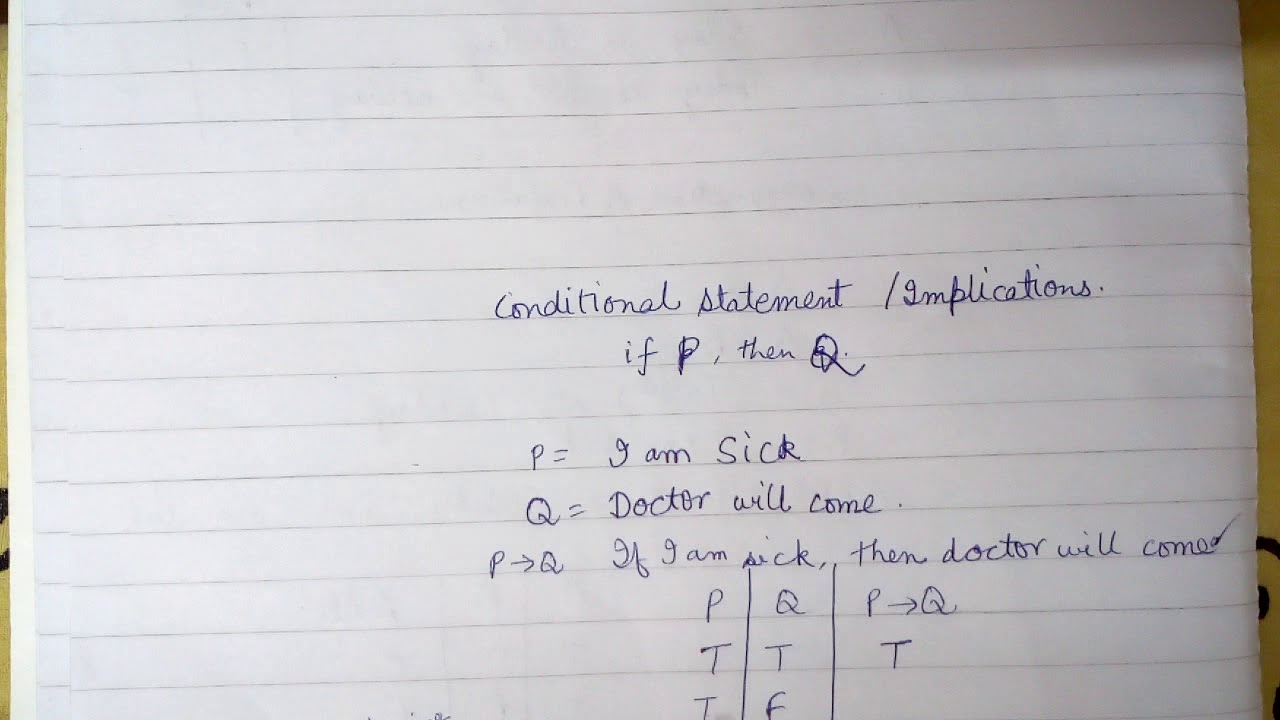 Conditional Statement / Implications.
if P, then Q.
P = I am Sick
Q = Doctor will come.
P → Q If I am sick, then doctor will come
P Q P → Q
T T T
T F